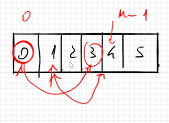 0 n-1
0 1 2 3 4 5